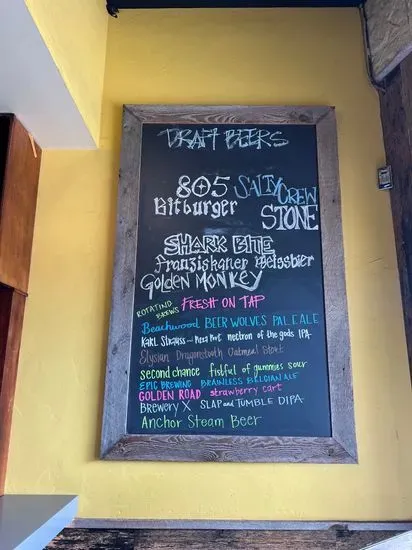 DRAFT BEERS
805 SALTY CREW
Bitburger STONE
SHARK BITE
Franziskaner Weissbier
GOLDEN MONKEY
ROTATING BREWS FRESH ON TAP
Beachwood BEER WOLVES PALE ALE
KARL STRAUSS nectron of the gods IPA
Elysian Dragonstooth Oatmeal Stout
second chance fistful of gummies sour
EPIC BREWING BRAINLESS BELGIAN ALE
GOLDEN ROAD strawberry cart
BREWERY X SLAP and TUMBLE DIPA
Anchor Steam Beer